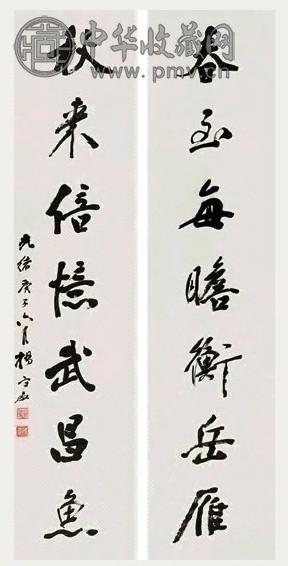 中华收藏网
www.pmv.cn
春至每瞻衡岳雁
秋来倍憶武昌魚
光緒庚子六月楊守敬